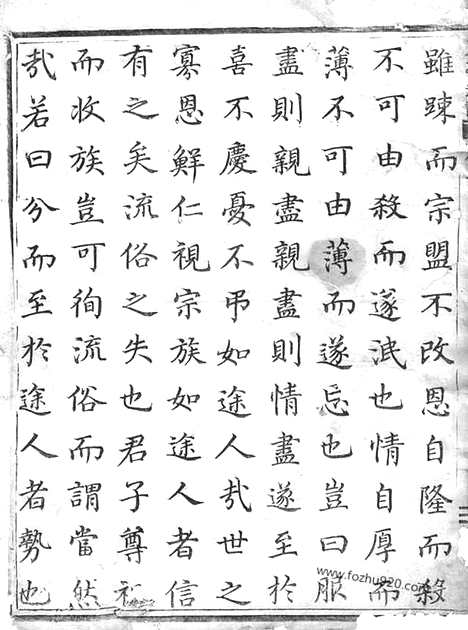 雖踈而宗盟不改恩自隆而殺
不可由殺而遂泯也情自厚而
薄不可由薄而遂忘也豈曰服
盡則親盡親盡則情盡遂至於
喜不慶憂不弔如途人㢤世之
寡恩鮮仁視宗族如途人者信
有之矣流俗之失也君子尊祖
而收族豈可徇流俗而謂當然
㢤若曰分而至於途人者勢也
www.fozhu920.com